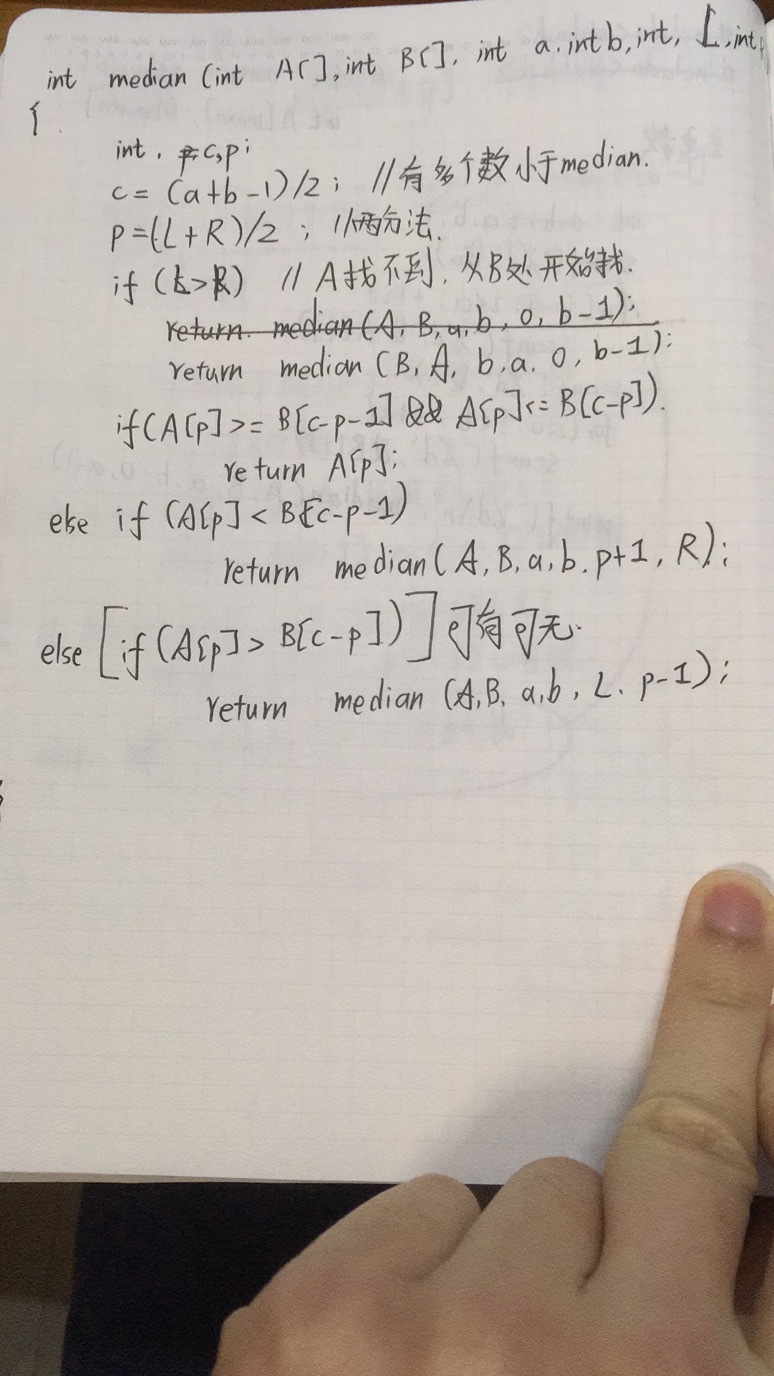 int median (int A[], int B[], int a. int b, int, L, int
{
int, c,p;
c = (a+b-1)/2; //有多个数小于median.
p=(L+R)/2; //两分法.
if (L>R) // A找不到, 从B处开始找.
return. median(A, B, a, b, 0, b-1);
return median (B, A, b, a, 0, b-1);
if(A[p]>= B[c-p-1] && A[p]<= B[c-p]).
return A[p];
else if (A[p] < B[c-p-1)
return median(A, B, a, b, p+1, R);
else [if (A[p]> B[c-p])] 可有可无.
return median (A,B, a,b, L, p-1);